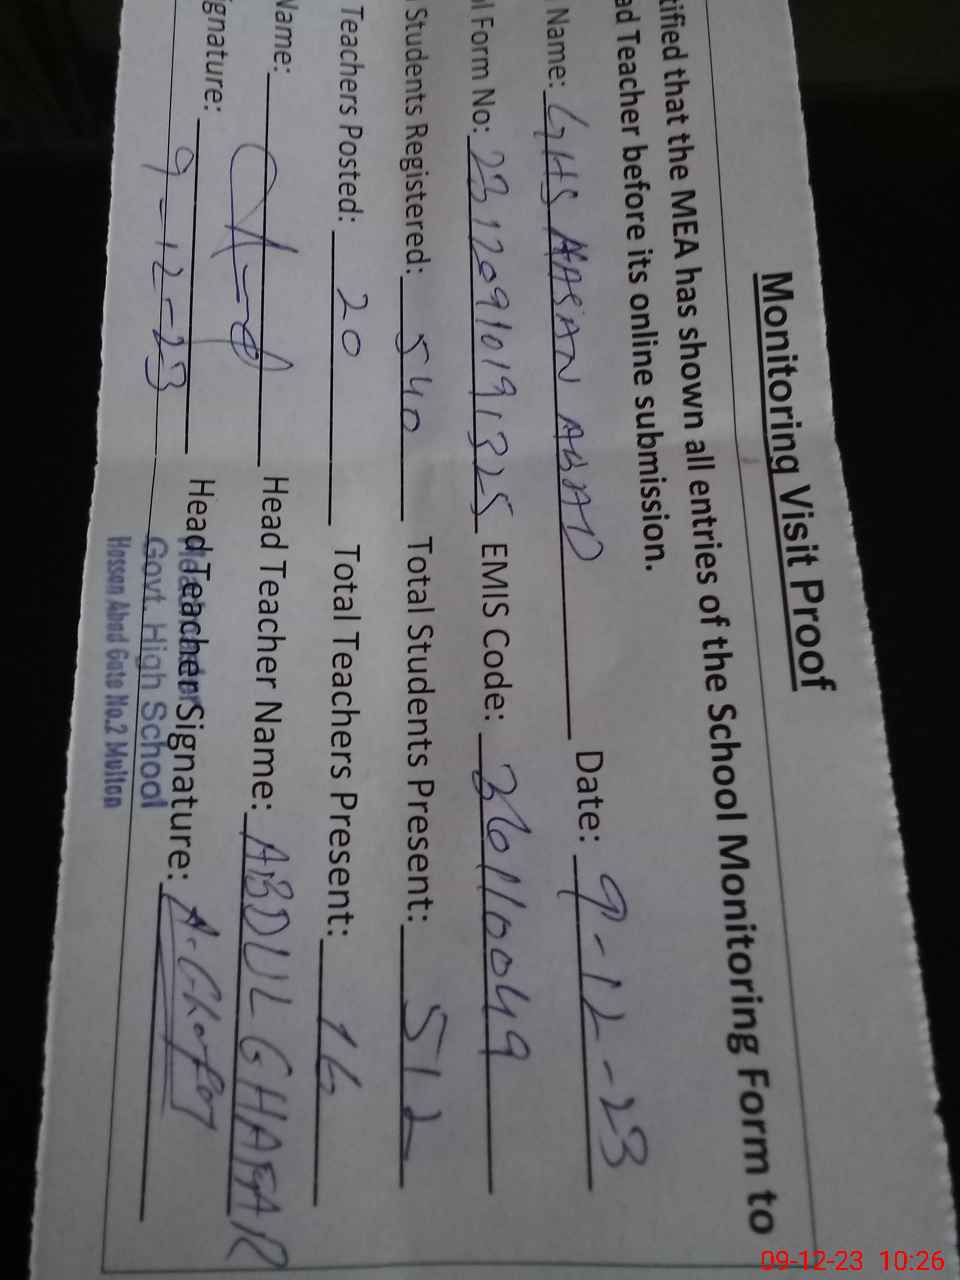 Monitoring Visit Proof
tified that the MEA has shown all entries of the School Monitoring Form to
ad Teacher before its online submission.
Name: GHS HASAN ABAD Date: 9-12-23
l Form No: 23120910191325 EMIS Code: 36110049
Students Registered: 540 Total Students Present: 512
Teachers Posted: 20 Total Teachers Present: 16
Name: Head Teacher Name: ABDUL GHAFAR
ignature: 9-12-23 Head Teacher Signature: A. Ghafar
Govt. High School
Hassan Abad Gate No.2 Multan
09-12-23 10:26